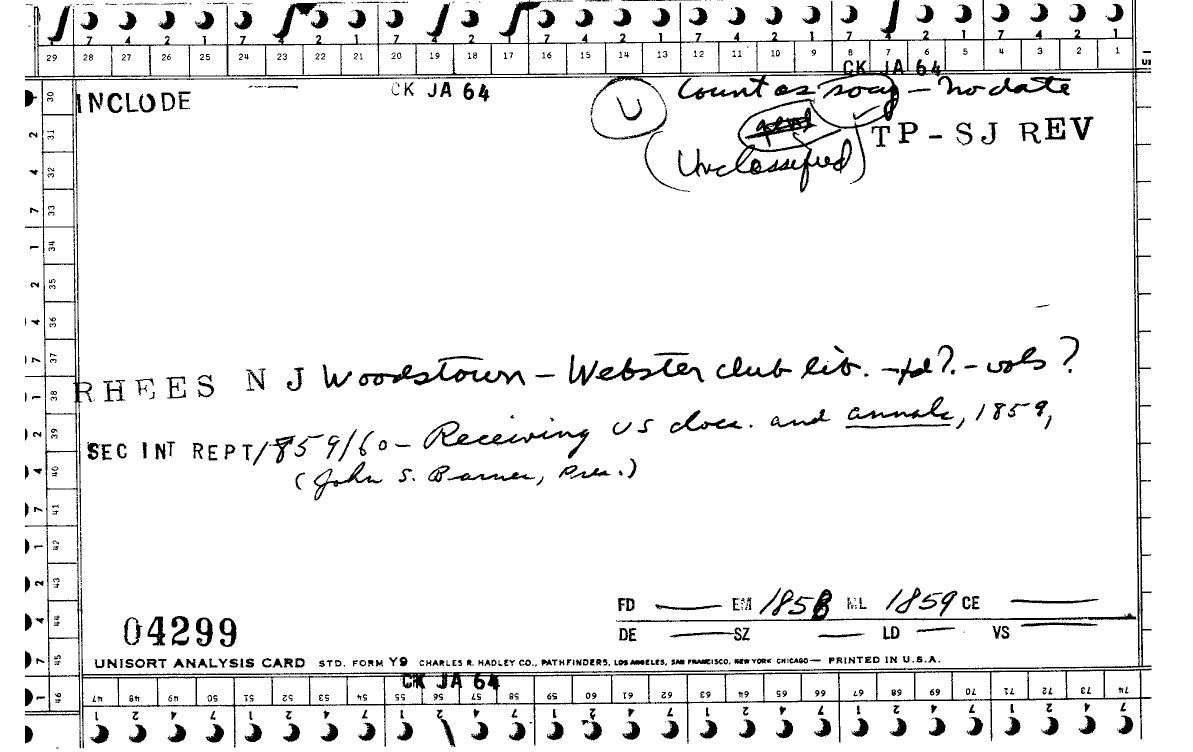 7 4 2 1 7 4 2 1 7 4 2 1 7 4 2 1 7 4 2 1 7 4 2 1 7 4 2 1
29 28 27 26 25 24 23 22 21 20 19 18 17 16 15 14 13 12 11 10 9 8 7 6 5 4 3 2 1
CK JA 64
INCLUDE CK JA 64 U Count as socy - no date
TP-SJ REV
(Unclassified)
RHEES N J Woodstown - Webster club lib. - fd? - vols?
SEC INT REPT 1859/60 - Receiving US docs. and annals, 1859,
(John S. Barnes, Pres.)
FD — EM 1858 ML 1859 CE —
DE — SZ — LD — VS —
04299
UNISORT ANALYSIS CARD STD. FORM Y9 CHARLES R. HADLEY CO., PATHFINDERS, LOS ANGELES, SAN FRANCISCO, NEW YORK CHICAGO — PRINTED IN U.S.A.
CK JA 64
30 31 32 33 34 35 36 37 38 39 40 41 42 43 44 45 46
47 48 49 50 51 52 53 54 55 56 57 58 59 60 61 62 63 64 65 66 67 68 69 70 71 72 73 74